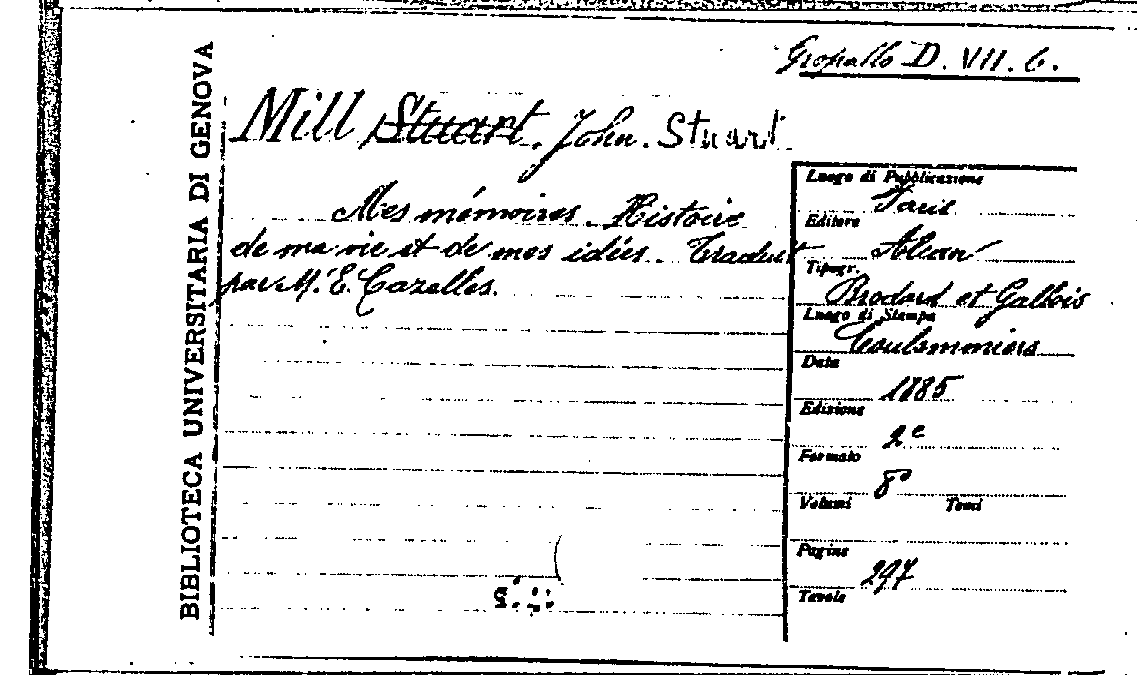 Gropallo D. VII. 6.
BIBLIOTECA UNIVERSITARIA DI GENOVA
Mill Stuart. John. Stuart
Mes mémoires. Histoire
de ma vie et de mes idées. Traduit
par M. E. Cazelles.
Luogo di Pubblicazione
Paris
Editore
Alcan
Tipogr.
Brodard et Gallois
Luogo di Stampa
Coulommiers
Data
1885
Edizione
2e
Formato
8°
Volumi Tomi
Pagine
297
Tavole